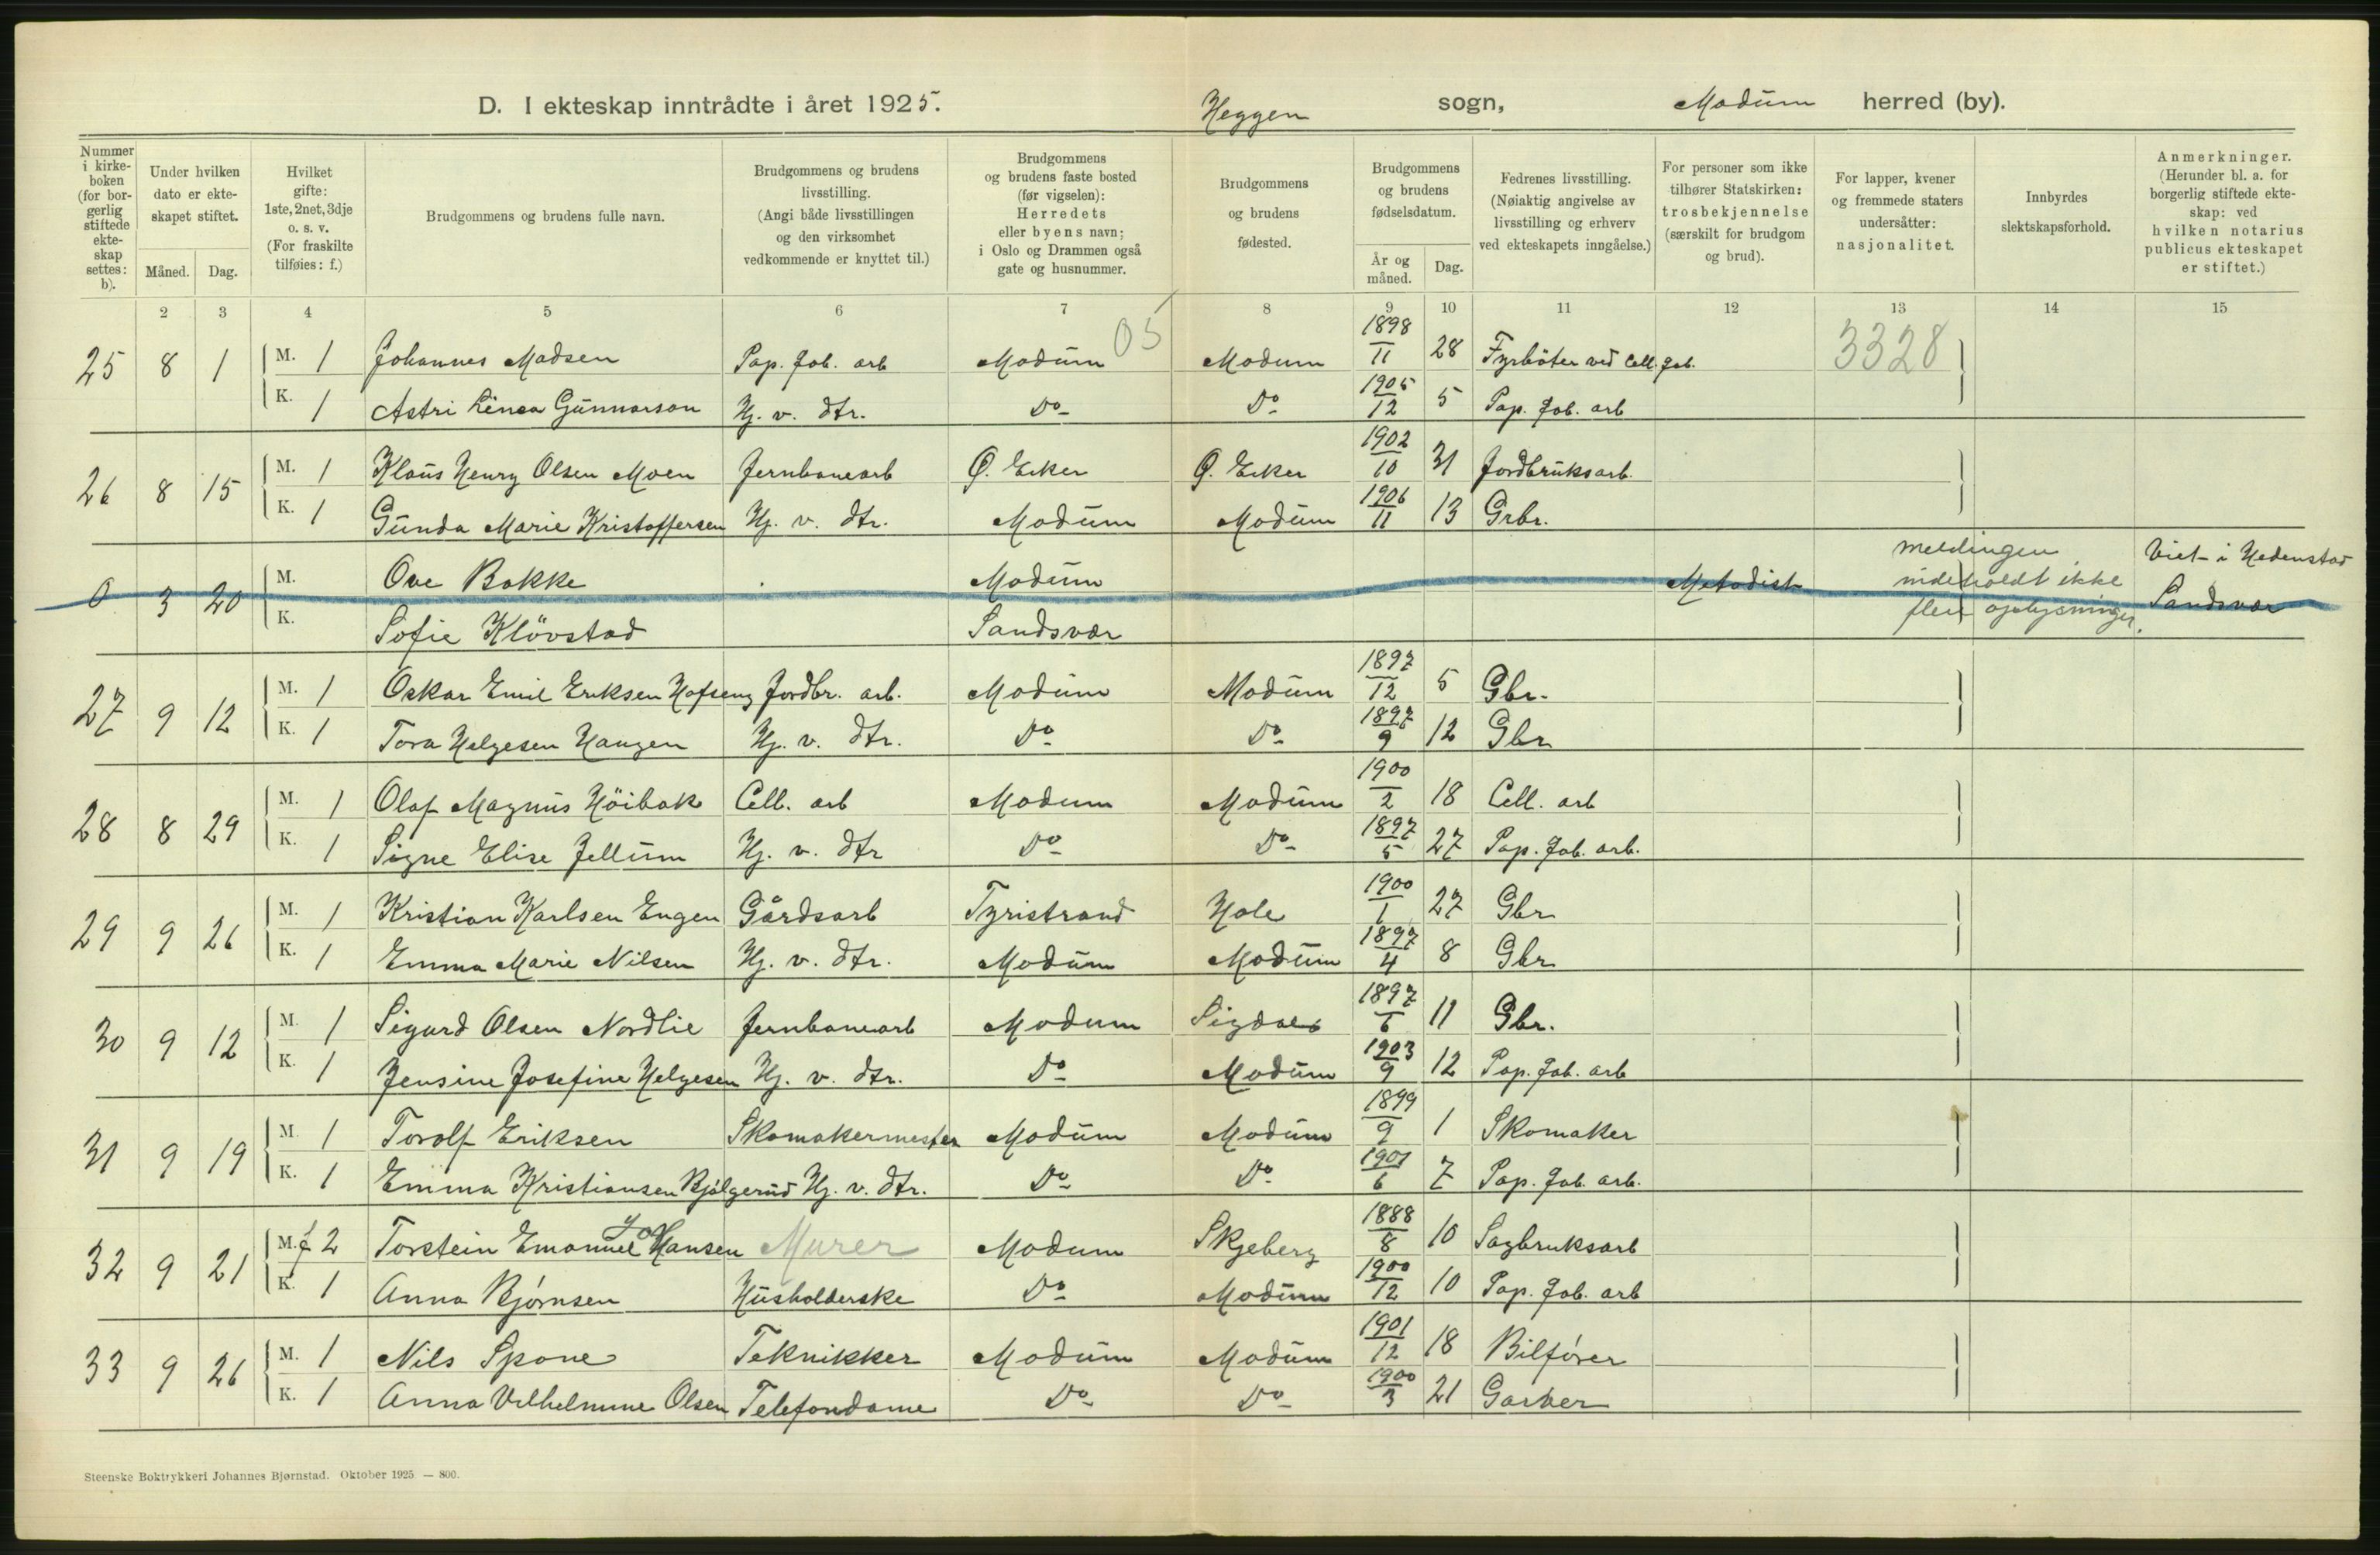 D. I ekteskap inntrådte i året 1925. Heggen sogn, Modum herred (by).
Nummer i kirke-boken (for bor-gerlig stiftede ekte-skap settes: b).
Under hvilken dato er ekte-skapet stiftet.
Måned. Dag.
Hvilket gifte: 1ste, 2net, 3dje o. s. v. (For fraskilte tilføies: f.)
Brudgommens og brudens fulle navn.
Brudgommens og brudens livsstilling. (Angi både livsstillingen og den virksomhet vedkommende er knyttet til.)
Brudgommens og brudens faste bosted (før vigselen): Herredets eller byens navn; i Oslo og Drammen også gate og husnummer.
Brudgommens og brudens fødested.
Brudgommens og brudens fødselsdatum.
År og måned. Dag.
Fedrenes livsstilling. (Nøiaktig angivelse av livsstilling og erhverv ved ekteskapets inngåelse.)
For personer som ikke tilhører Statskirken: trosbekjennelse (særskilt for brudgom og brud).
For lapper, kvener og fremmede staters undersåtter: nasjonalitet.
Innbyrdes slektskapsforhold.
Anmerkninger. (Herunder bl. a. for borgerlig stiftede ekte-skap: ved hvilken notarius publicus ekteskapet er stiftet.)
2 3 4 5 6 7 8 9 10 11 12 13 14 15
05 3328
25 8 1 M. 1 Johannes Madsen Pap. fab. arb Modum Modum 1898/11 28 Fyrböter ved Cell. fab.
K. 1 Astri Linea Gunnarson Hj. v. dtr. Do Do 1905/12 5 Pap. fab. arb
26 8 15 M. 1 Klaus Henry Olsen Moen Jernbanearb Ø. Eker Ø. Eker 1902/10 31 Jordbruksarb.
K. 1 Gunda Marie Kristoffersen Hj. v. dtr. Modum Modum 1906/11 13 Grbr.
0 3 20 M. Ove Bakke Modum Metodist meldingen indeholdt ikke Viet i Hedenstad
K. Sofie Klövstad Sandsvær flere oplysninger. Sandsvær
27 9 12 M. 1 Oskar Emil Eriksen Hafseng Jordbr. arb. Modum Modum 1897/12 5 Gbr.
K. 1 Tora Helgesen Haugen Hj. v. dtr. Do Do 1897/9 12 Gbr
28 8 29 M. 1 Olaf Magnus Höibak Cell. arb Modum Modum 1900/2 18 Cell. arb
K. 1 Signe Elise Jellum Hj. v. dtr Do Do 1897/5 27 Pap. fab. arb.
29 9 26 M. 1 Kristian Karlsen Engen Gårdsarb Tyristrand Hole 1900/1 27 Gbr
K. 1 Emma Marie Nilsen Hj. v. dtr. Modum Modum 1897/4 8 Gbr
30 9 12 M. 1 Sigurd Olsen Nordlie Jernbanearb Modum Sigdal 1897/6 11 Gbr.
K. 1 Jensine Josefine Helgesen Hj. v. dtr. Do Modum 1903/9 12 Pap. fab. arb
31 9 19 M. 1 Torolf Eriksen Skomakermester Modum Modum 1899/9 1 Skomaker
K. 1 Emma Kristiansen Bjålgerud Hj. v. dtr. Do Do 1901/6 7 Pap. fab. arb.
32 9 21 M. f 2 Torstein Emanuel Hansen Murer Modum Skjeberg 1888/8 10 Sagbruksarb
K. 1 Anna Bjørnsen Husholderske Do Modum 1900/12 10 Pap. fab. arb
33 9 26 M. 1 Nils Spone Teknikker Modum Modum 1901/12 18 Bilfører
K. 1 Anna Vilhelmine Olsen Telefondame Do Do 1900/3 21 Garver
Steenske Boktrykkeri Johannes Bjørnstad. Oktober 1925 — 800.